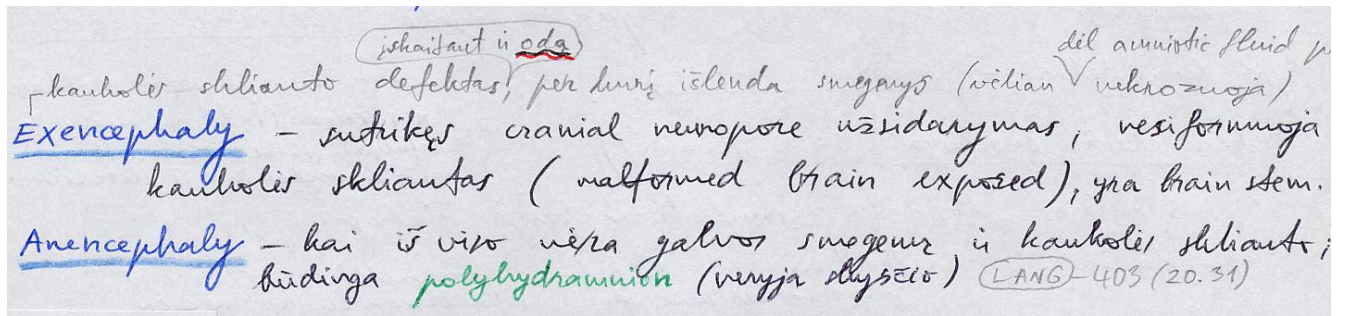 įskaitant ir odą
dėl amniotic fluid p
kaukolės skliauto defektas, per kurį išlenda smegenys (vėliau nekrozuoja)
Exencephaly – sutrikęs cranial neuropore užsidarymas, nesiformuoja
kaukolės skliautas (malformed brain exposed), yra brain stem.
Anencephaly – kai iš viso nėra galvos smegenų ir kaukolės skliauto;
būdinga polyhydramnion (neryja skysčio) LANG – 403 (20.31)